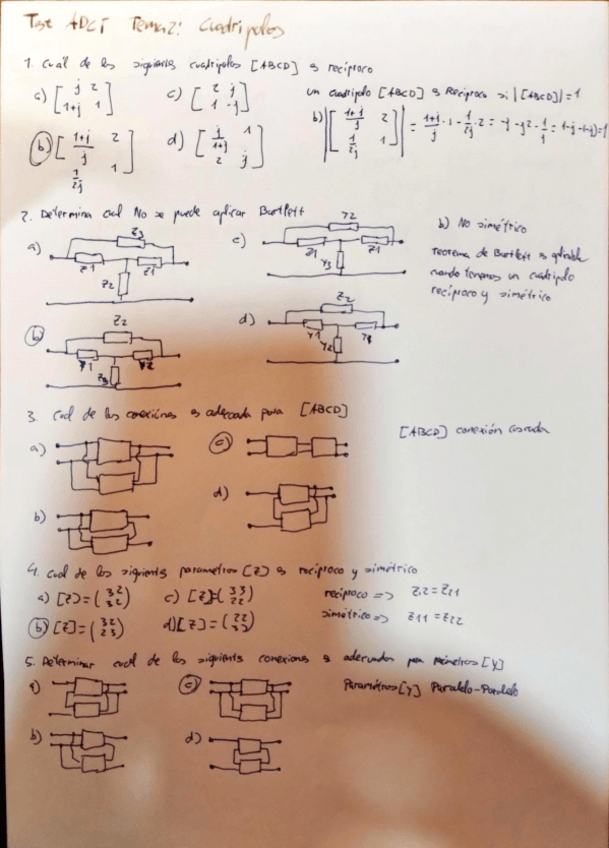 Test ADCT Tema 2: Cuadripolos
1. Cuál de los siguientes cuadripolos [ABCD] es recíproco
a) [j 2
1+j 1]
c) [2 j
1 -j]
un cuadripolo [ABCD] es Recíproco si |[ABCD]|=1
b) [1+j/j 2
1/2j 1]
d) [j/1+j 1
2 j]
b) |[1+j/j 2
1/2j 1]| = 1+j/j · 1 - 1/2j · 2 =
2. Determina cual No se puede aplicar Bartlett
a) Z3 Z1 Z1 Z2
c) Y2 Z1 Z1 Y3
b) No simétrico
Teorema de Bartlett es aplicable
cuando tenemos un cuadripolo
recíproco y simétrico
b) Z2 Z1 Y2 Z3
d) Z2 Y1 Y1 Y2
3. Cual de las conexiones es adecuada para [ABCD]
a)
c)
[ABCD] conexión cascada
b)
d)
4. Cual de los siguientes parametros [Z] es recíproco y simétrico
a) [Z]=(3 2
3 2)
c) [Z]=(3 3
2 2)
recíproco => Z12=Z21
b) [Z]=(3 2
2 3)
d) [Z]=(2 2
3 3)
simétrico => Z11=Z22
5. Determinar cual de las siguientes conexiones es adecuada para parámetros [Y]
a)
c)
Parámetros [Y] Paralelo-Paralelo
b)
d)